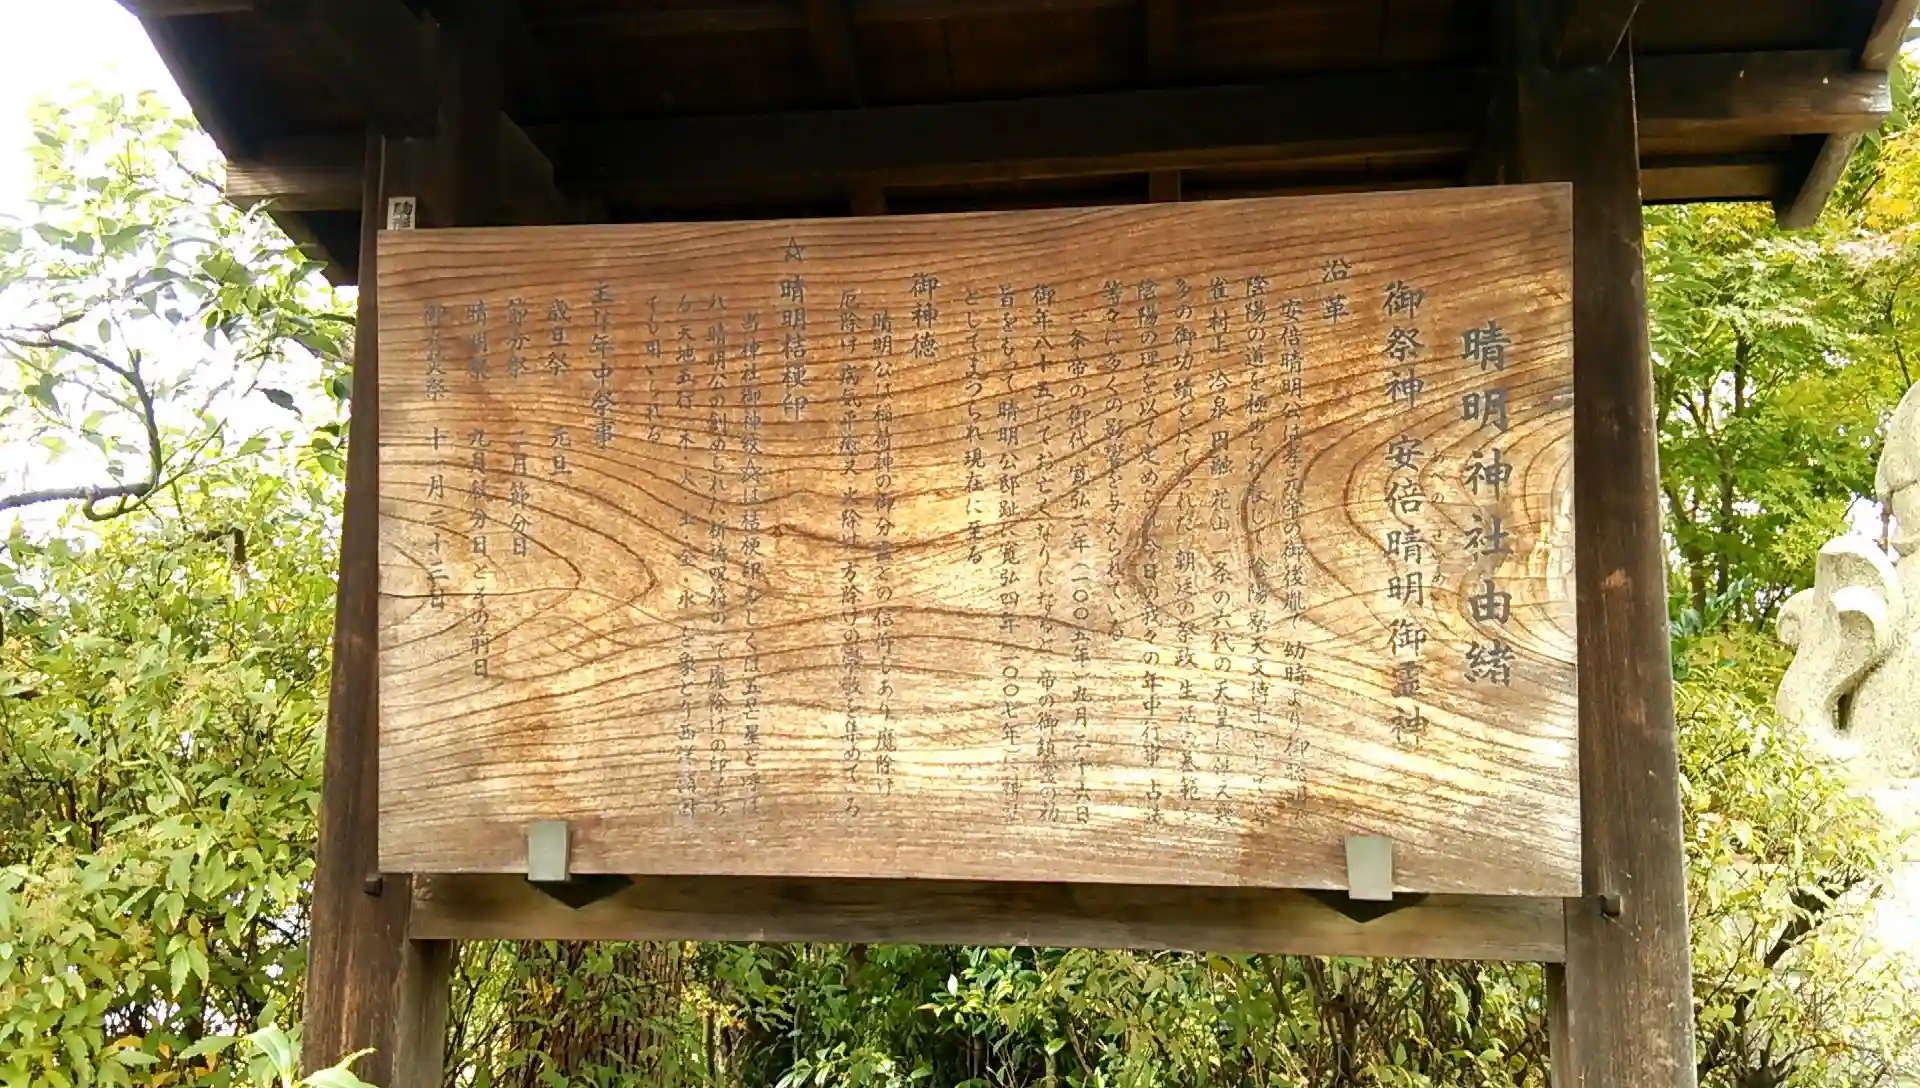 晴明神社由緒
御祭神 安倍晴明御霊神
あべのせいめい
沿革
安倍晴明公は孝元帝の御後胤で 幼時より御聡明
陰陽の道を極められまして 陰陽寮天文博士として
雀 村上 冷泉 円融 花山 一条の六代の天皇に仕え数
多の御功績をたてられた 朝廷の祭政 生活の基範を
陰陽の理を以て定められ今日の我々の年中行事 占法
等々に多くの影響を与えられている
一条帝の御代 寛弘二年(一〇〇五年)九月二十六日
御年八十五にてお亡くなりになるや 帝の御鎮霊の勅
旨をもって 晴明公邸趾に寛弘四年(一〇〇七年)に神社
としてまつられ現在に至る
御神徳
晴明公は稲荷神の御分霊との信仰もあり 魔除け
厄除け 病気平癒 又 火除け 方除けの崇敬を集めている
☆ 晴明桔梗印
当神社御神紋☆は桔梗印もしくは五芒星と呼ば
れ 晴明公の創められた祈祷呪符の一つ 魔除けの印であ
る 天地五行 木・火・土・金・水 を象どり西洋諸国
でも用いられる
主な年中祭事
歳旦祭 元旦
節分祭 二月節分日
晴明祭 九月秋分日とその前日
御火焚祭 十一月二十三日